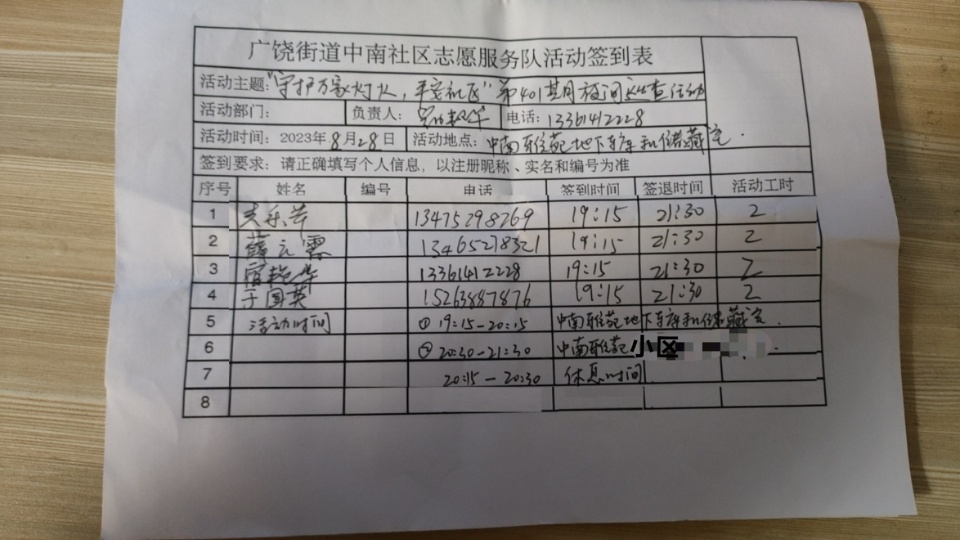 广饶街道中南社区志愿服务队活动签到表
活动主题:"守护万家灯火,平安社区"第401期夜间巡查活动
活动部门: 负责人: 电话:13361412228
活动时间:2023年8月28日 活动地点:中南雅苑地下车库和储藏室.
签到要求:请正确填写个人信息,以注册昵称、实名和编号为准
序号 姓名 编号 电话 签到时间 签退时间 活动工时
1 13475298269 19:15 21:30 2
2 薛云霞 13465278321 19:15 21:30 2
3 艳华 13361412228 19:15 21:30 2
4 于国英 15263887876 19:15 21:30 2
5 活动时间 ① 19:15-20:15 中南雅苑地下车库和储藏室.
6 ② 20:30-21:30 中南雅苑小区
7 20:15-20:30 休息时间
8